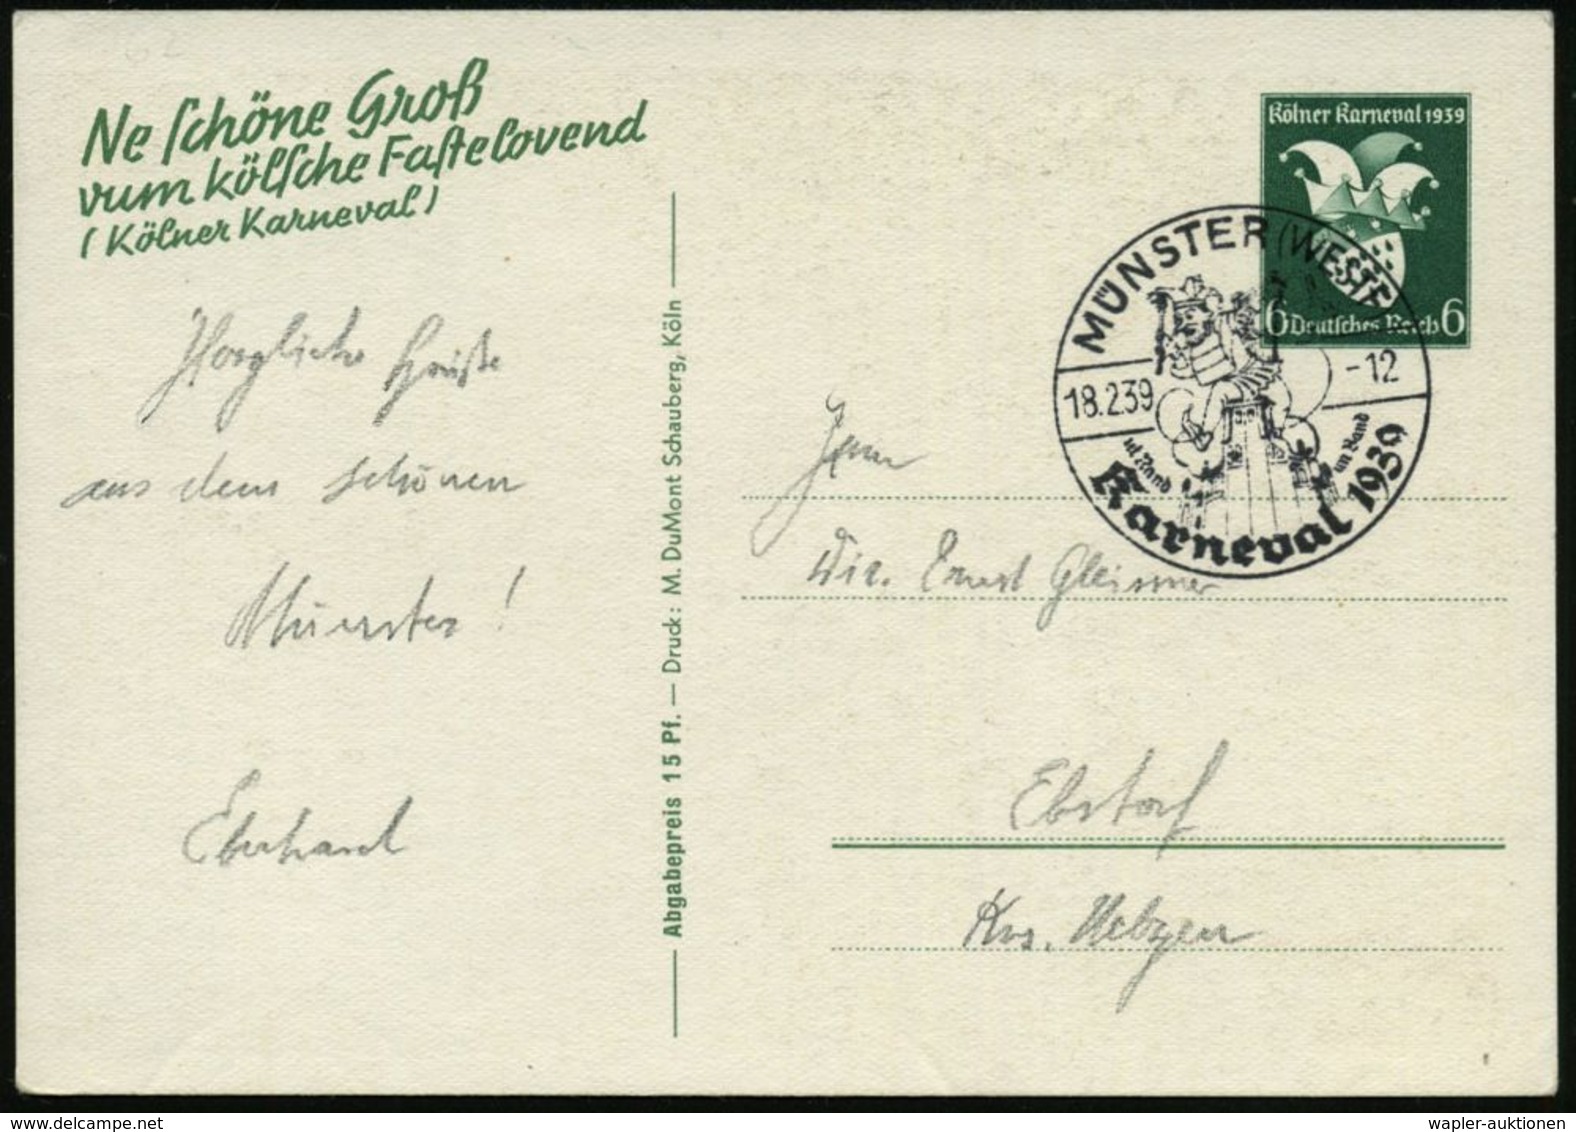 Ne schöne Groß
vum kölsche Fastelovend
(Kölner Karneval)
Herzliche Grüße
aus dem schönen
Münster!
Eberhard
Abgabepreis 15 Pf. — Druck: M. DuMont Schauberg, Köln
Kölner Karneval 1939
6 Deutsches Reich 6
MÜNSTER (WESTF)
18.2.39 -12
Rand
Karneval 1939
Herrn
Dir. Ernst Gleisner
Ebstorf
Krs. Uelzen
wapler-auktionen